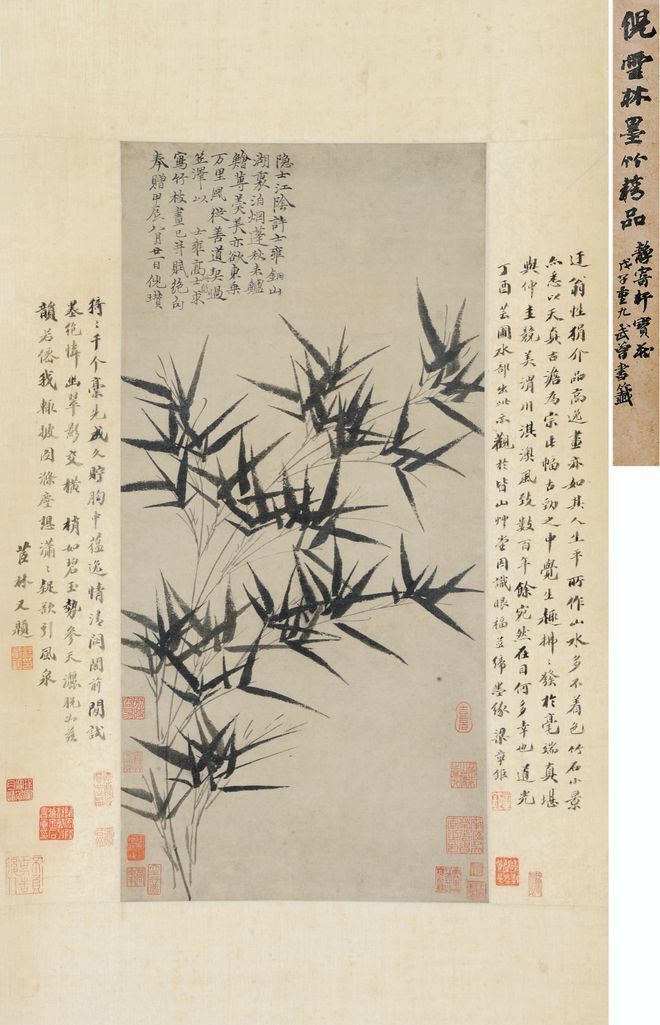 倪雲林墨竹精品
静寄軒寶藏
戊子重九武曾書籤
隐士江陰許士雍銅山
湖裏泊烟蓬秋來鱸
鱠蓴羹美亦欲東乘
万里風從善道契過
笠澤以 士雍高士求
寫竹枝畫已并賦絕句
奉贈甲辰八月廿一日倪瓚
迂翁性狷介品高逸畫亦如其人生平所作山水多不着色竹石小景
亦悉以天真古澹為宗此幅古勁之中覺生趣拂〻發於毫端真堪
與仲圭競美渭川淇澳風致數百年餘宛然在目何多幸也道光
丁酉芸圃水部出此示觀於皆山艸堂因識眼福並締墨緣梁章鉅
猗〻千个稾先成久貯胸中蕴逸情清閟閣前閒試
墨絶憐幽翠影交橫 梢如碧玉勢參天灑脱
韻若僊我輒披圖滌塵想瀟〻疑欲引風泉
茝林又題